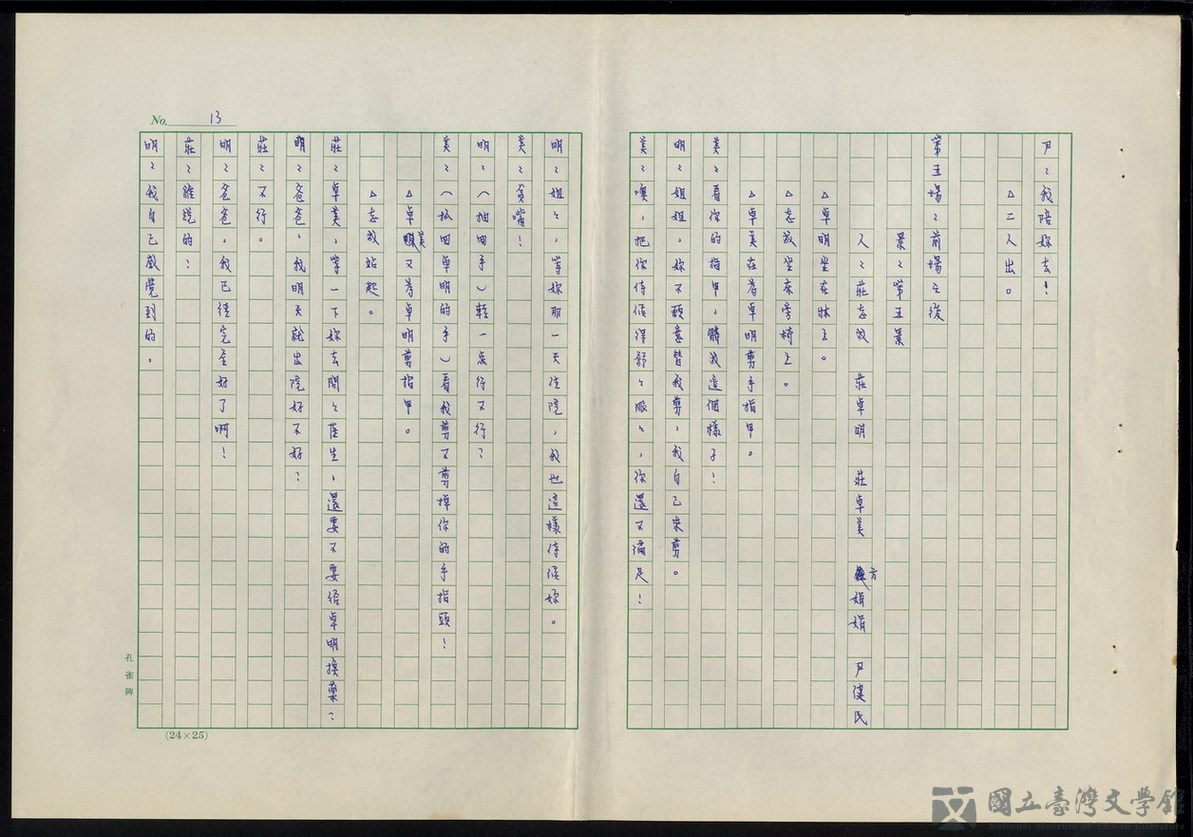 尹：我陪妳去！
△二人出。
第五場：前場之後
景：第五景
人：莊志放　莊卓明　莊卓美　方娟娟　尹漢民
△卓明坐在牀上。
△志放坐床旁椅上。
△卓美在為卓明剪手指甲。
美：看你的指甲，髒成這個樣子！
明：姐姐，妳不願意替我剪，我自己來剪。
美：噢，把你侍候得舒舒服服，你還不滿足！
No. 13
明：姐姐，等妳那一天住院，我也這樣侍候妳。
美：貧嘴！
明：（抽回手）輕一点行不行？
美：（抓回卓明的手）看我剪不剪掉你的手指頭！
△卓美又為卓明剪指甲。
△志放站起。
莊：卓美，等一下妳去問問醫生，還要不要給卓明換藥？
明：爸爸，我明天就出院好不好？
莊：不行。
明：爸爸，我已經完全好了啊！
莊：誰說的？
明：我自己感覺到的。
孔雀牌
(24×25)
國立臺灣文學館
National Museum of Taiwan Literature